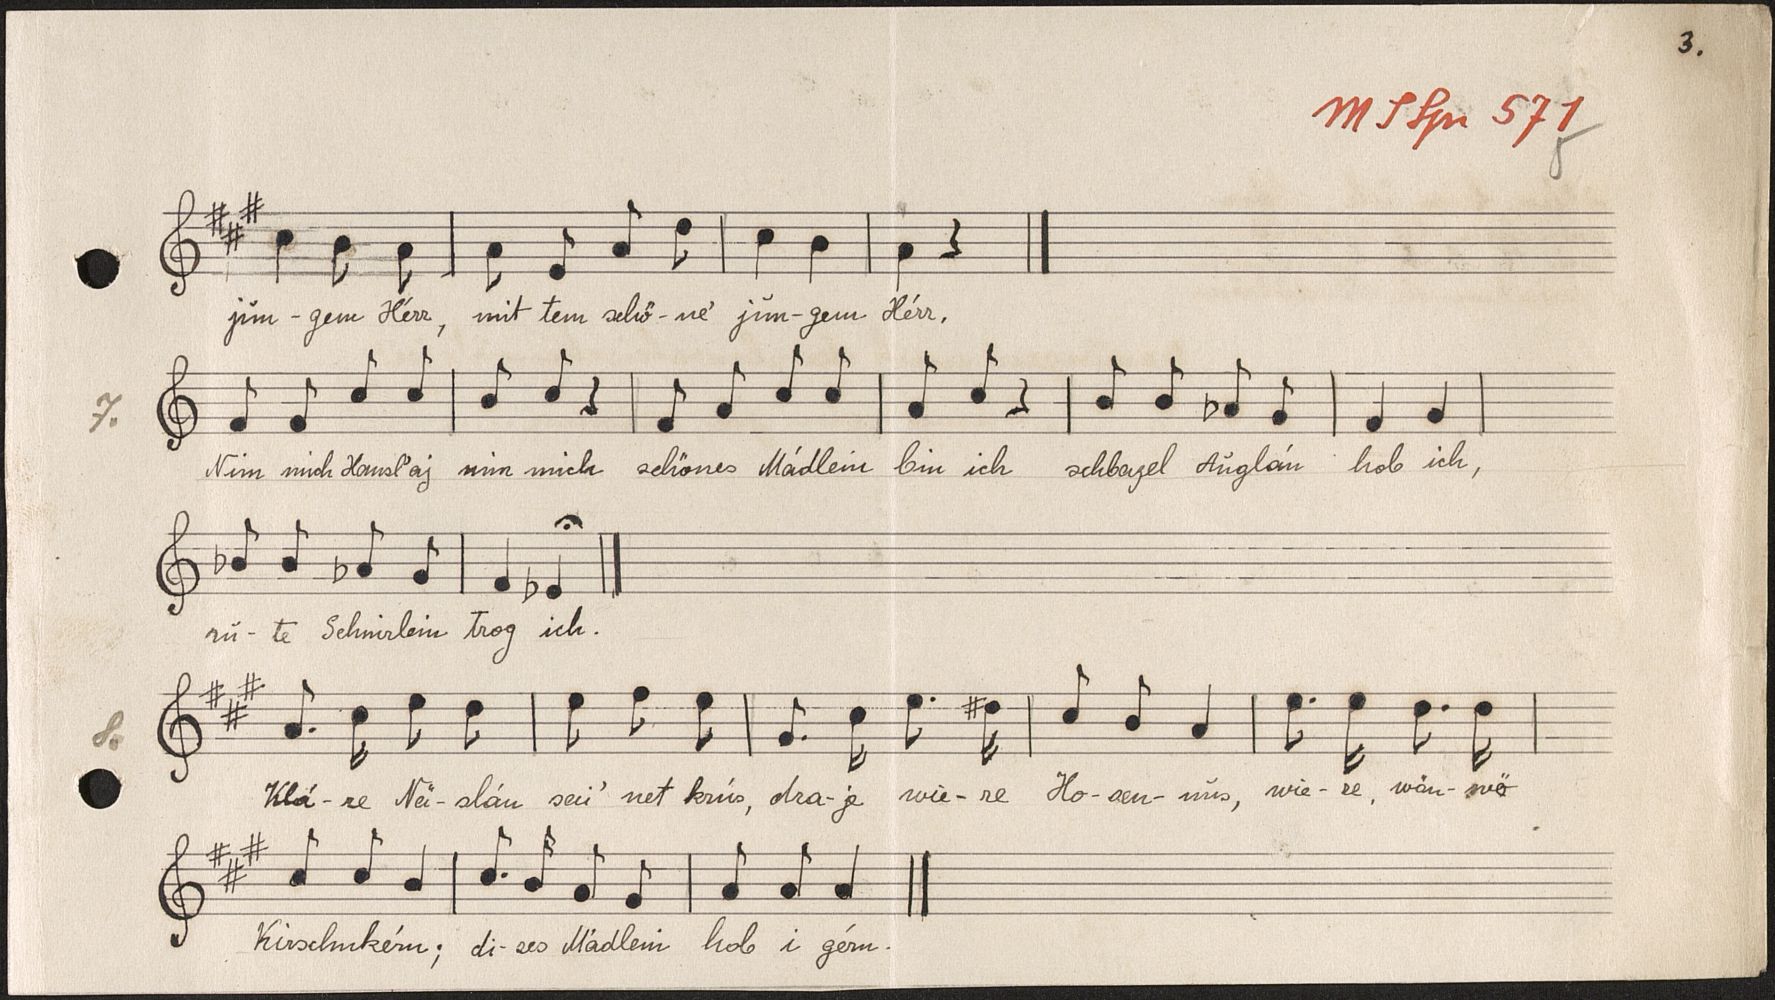 3.
M S Spr 571
8
jŭn - gem Hérr, mit tem schö - ne' jŭn - gem Hérr.
7.
Nim mich Hansl'aj nim mich schönes Mádlein bin ich schbazel Aŭglán hob ich,
rŭ - te Schnirlein trog ich.
8.
Klá - re Nä - slán sei' net krŭs, dra - je wie - re Ho - sen - nŭs, wie - re, wän - wö
Kirschnkérn; di - ses Mädlein hob i gérn.